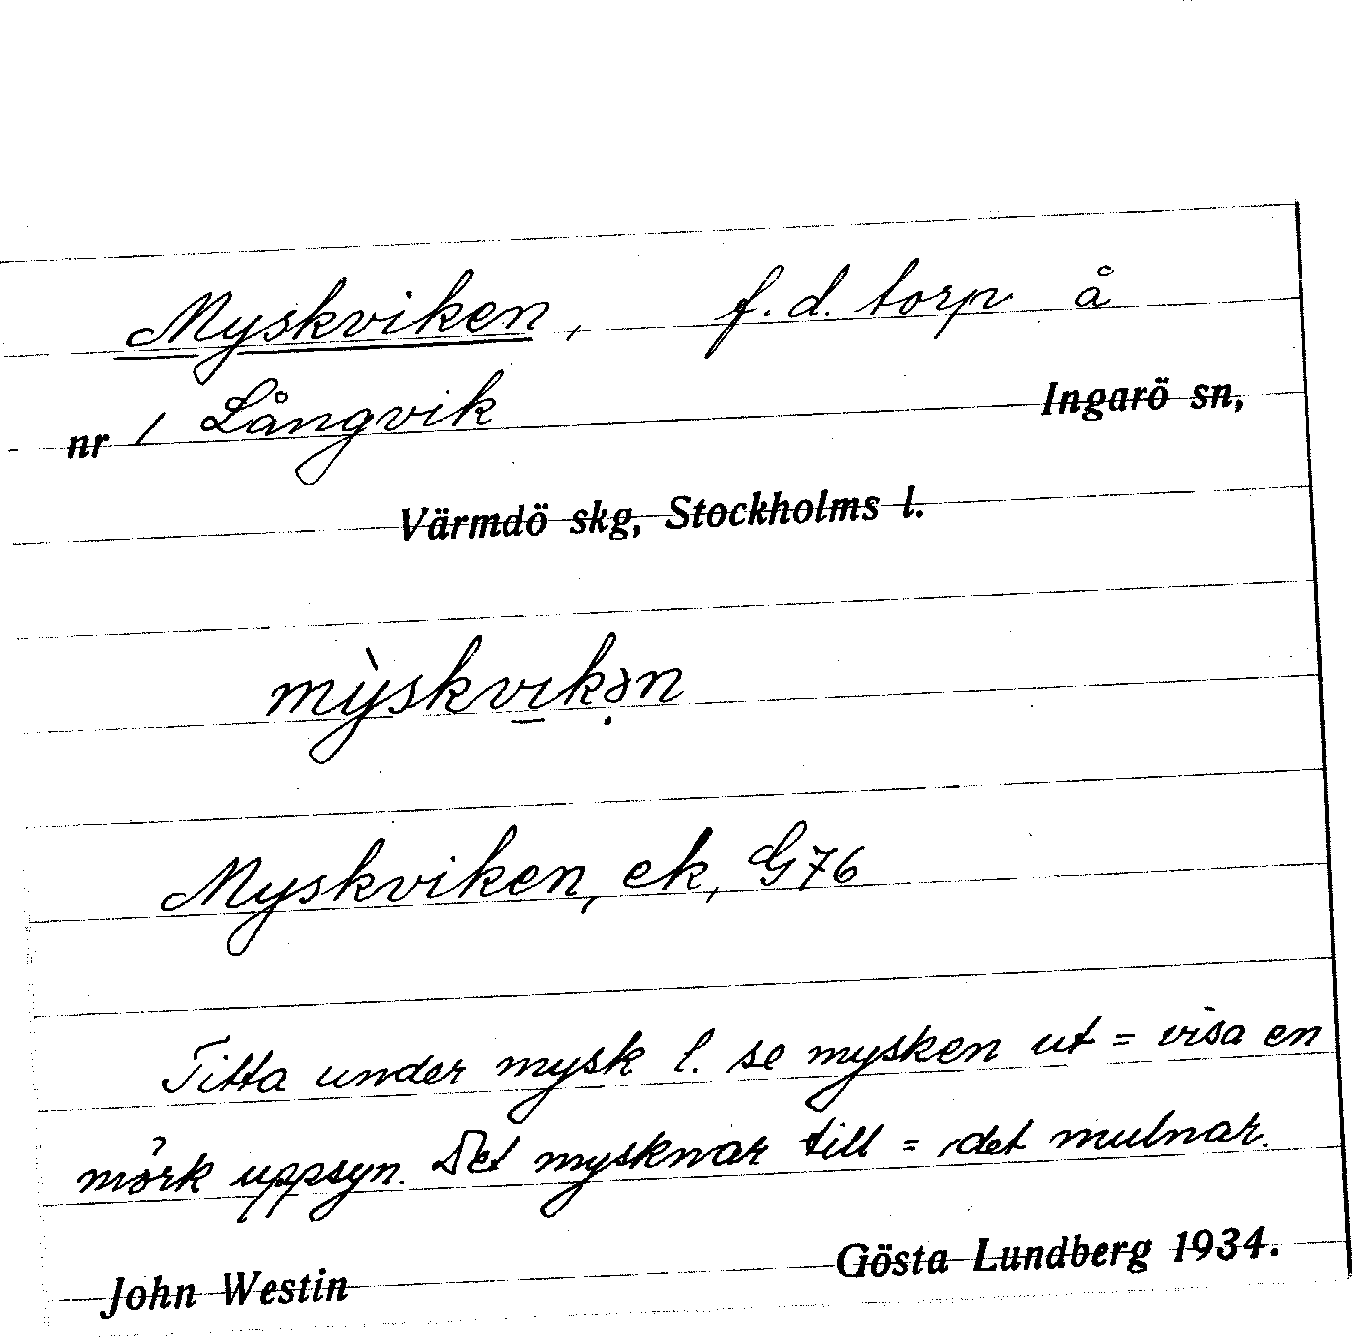 Myskviken, f.d. torp å
nr 1 Långvik Ingarö sn,
Värmdö skg, Stockholms l.
mỳskvıkən
Myskviken, ek, G76
Titta under mysk l. se mysken ut = visa en
mörk uppsyn. Det mysknar till = det mulnar.
John Westin Gösta Lundberg 1934.